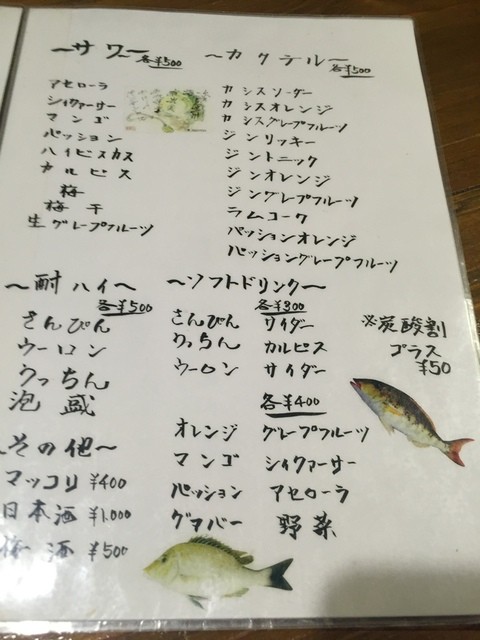 ～サワー 各¥500
アセロラ
シィクァーサー
マンゴ
パッション
ハイビスカス
カルピス
梅
梅干
生グレープフルーツ
～カクテル～ 各¥500
カシスソーダー
カシスオレンジ
カシスグレープフルーツ
ジンリッキー
ジントニック
ジンオレンジ
ジングレープフルーツ
ラムコーク
パッションオレンジ
パッショングレープフルーツ
～酎ハイ～
各¥500
さんぴん
ウーロン
うっちん
泡盛
～その他～
マッコリ ¥400
日本酒 ¥1.000
梅酒 ¥500
～ソフトドリンク～
各¥300
さんぴん サイダー
うっちん カルピス
ウーロン サイダー
各¥400
オレンジ グレープフルーツ
マンゴ シィクァーサー
パッション アセローラ
グァバー 野菜
※炭酸割
プラス
¥50